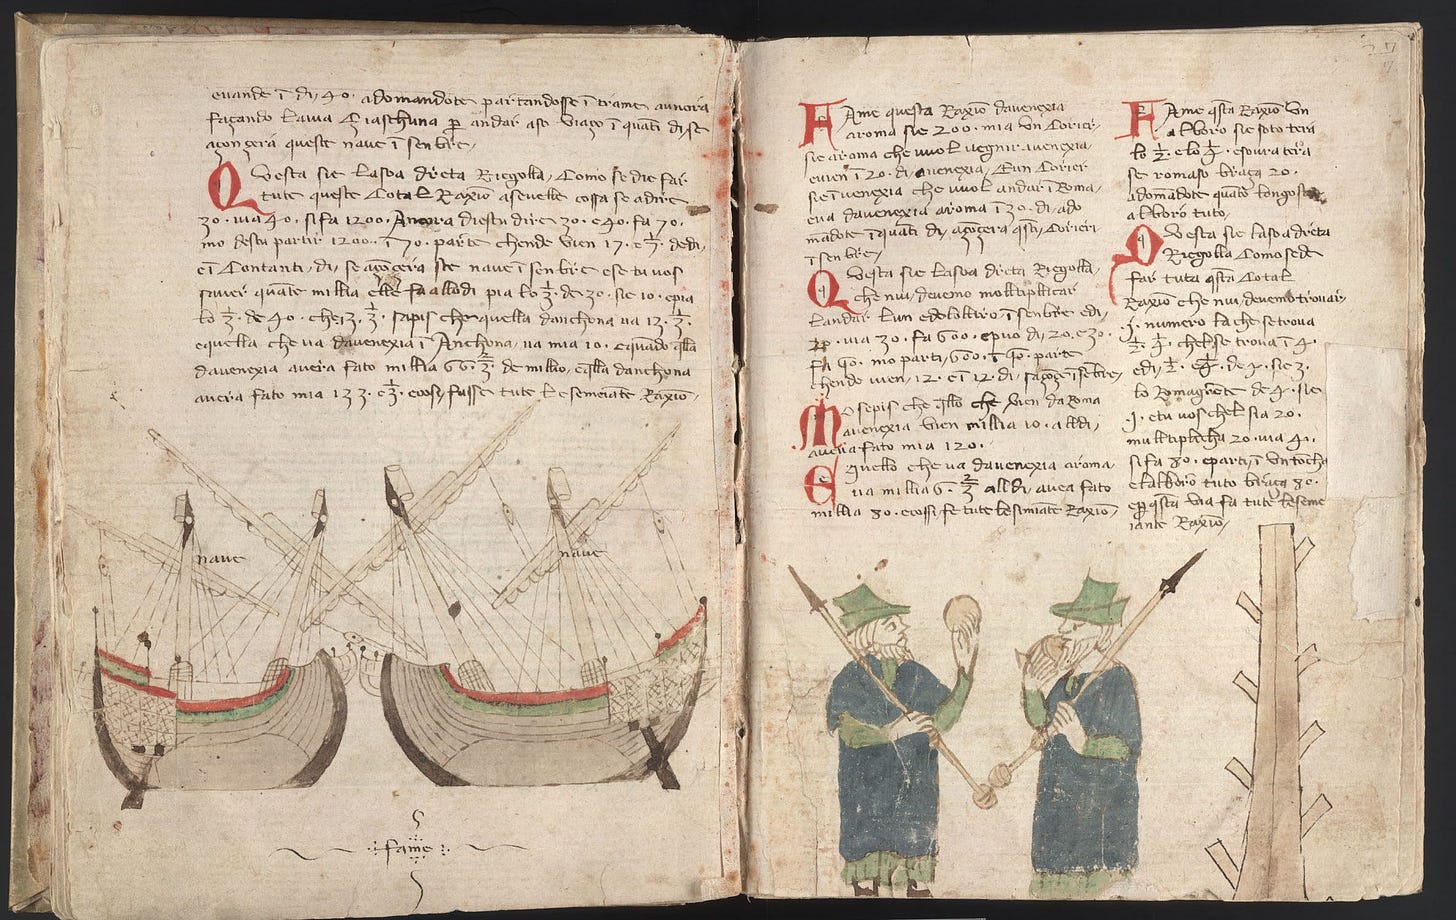 euande ī di 40. adomandote partandosse ī trame aunora
façando Laura Ciaschuna per andar aso viaço ī quāti di se
açonçerà queste naue ī senbre
Questa sie Lasoa dreta Riegolla, Como se die far
tute queste Cotal Raxiō aseuelle cossa se adire
30. uia 40. si fa 1200. Ancora diestu dire 30. e 40. fa 70.
mo destu partir 1200. ī 70. parte chende vien 17. e 1/7 dedi
eī Contanti di se açonçera ste naue ī senbre ese tu vos
sauer quāte millia elle fa al di pia lo 1/3 de 30. sie 10. e pia
lo 1/3 de 40. che 13. 1/3. sapis che quella danchona ua 13. 1/3.
equella che ua dauenexia ī Anchona, ua mia 10. equādo qlla
dauenexia auera fato millia 66. 2/3 de millio, eqlla danchona
auera fato mia 133. e 1/3. ecosi fusse tute Le semeiāte Raxiō
naue
naue
fame
FAme questa Raxiō dauenexia
aroma sie 200. mia Un Corier
sie aroma che uuol uegnir auenexia
euien ī 20. di, auenexia, Eun Corier
sie ī uenexia che uuol andar ī Roma
eua dauenexia aroma ī 30. di, ado
mādote ī quāti di, açonçera qsti Corieri
ī senbre
Questa sie Lasoa dreta Riegolla
che nui, deuemo moltiplicar
Landar Lun edeloltro ī senbre, edi
20. uia 30. fa 600. epuo di, 20. e 30.
fa 50. mo parti 600. ī 50. parte
chende uien, 12. e ī 12. di,
Mo sepis che qllo che vien da Roma
auenexia vien millia 10. al di
aueria fato mia 120.
E quello che ua dauenexia aroma
ua millia 6. 2/3 al di, auea fato
millia 80. ecossi fe tute le simiāte Raxiō
FAme qsta Raxiō Un
alboro sie soto tera
lo 1/3 e lo 1/4. esoura tera
se romaso braça 20.
adomādote quāto longo
alboro tuto,
Questa sie lasoa dreta
Riegolla Como sede
far tuta qsta Cotal
Raxiō che nui, deuemo trouar
j. numero la che se troua
1/3. 1/4. chel se troua ī
edi, 1/4. de sie 3.
lo Romagnēte de 4. sie
j. etu uos chel sia 20.
multiplicha 20. uia 4.
si fa 80. eparti, ī
elalboro tuto braça 80.
e p qsta via fa tute le seme
iante Raxiō